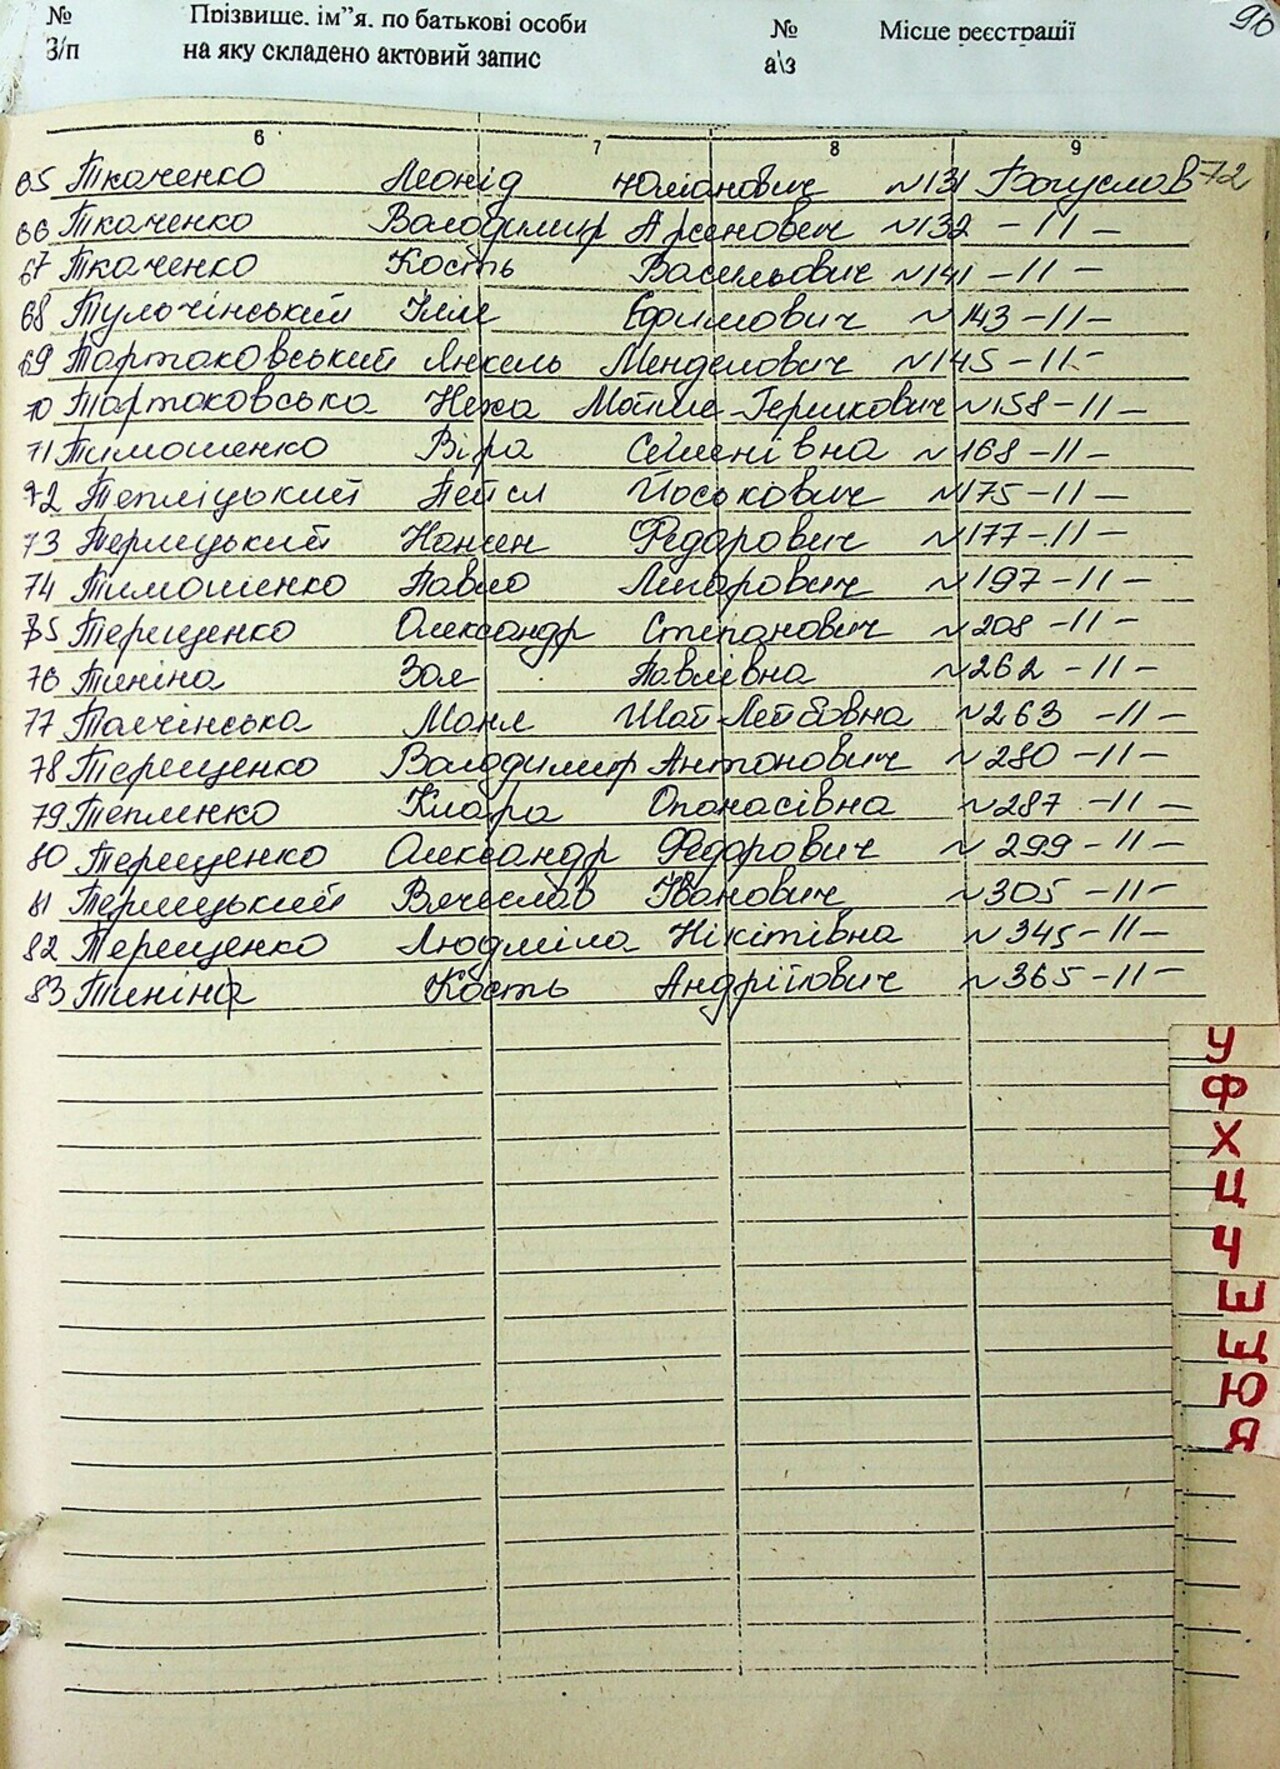 № Прізвище, ім"я, по батькові особи № Місце реєстрації 96
З/п на яку складено актовий запис а\з
6 7 8 9
65 Ткаченко Леонід Юліанович №131 Богуслав 72
66 Ткаченко Володимир Арсенович №132 -11-
67 Ткаченко Кость Васильович №141 -11-
68 Тульчінський Ілля Ефимович №143 -11-
69 Тартаковський Янкель Менделович №145 -11-
70 Тартаковська Неха Мойше-Гершкович №158 -11-
71 Тимошенко Віра Семенівна №168 -11-
72 Тепліцький Пейсл Йоськович №175 -11-
73 Терлецький Федорович №177 -11-
74 Тимошенко Павло №197 -11-
75 Терещенко Олександр Степанович №208 -11-
76 Тиніна Зоя Павлівна №262 -11-
77 Талчінська Маня Шай-Лейбовна №263 -11-
78 Терещенко Володимир Антонович №280 -11-
79 Тепленко Клара Опанасівна №287 -11-
80 Терещенко Олександр Федорович №299 -11-
81 Терлецький Вячеслав Іванович №305 -11-
82 Терещенко Людміла Нікітівна №345 -11-
83 Тиніна Кость Андрійович №365 -11-
У
Ф
Х
Ц
Ч
Ш
Щ
Ю
Я